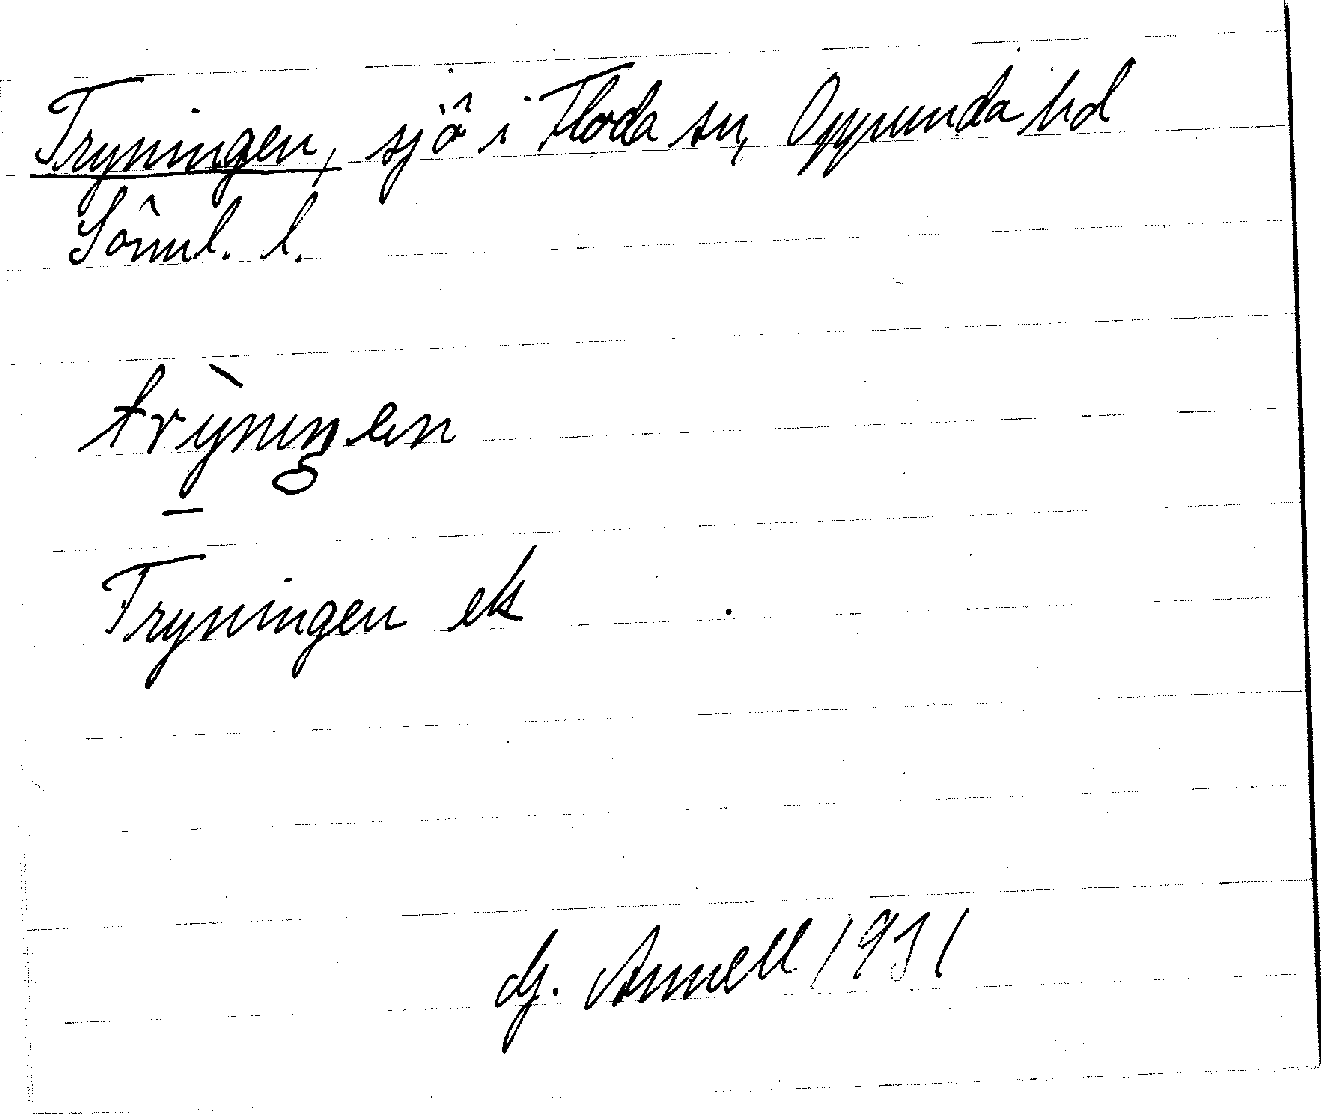 Tryningen, sjö i Floda sn, Oppunda hd
Söml. l.
trỳniŋen
Tryningen ek
G. Annell 1931